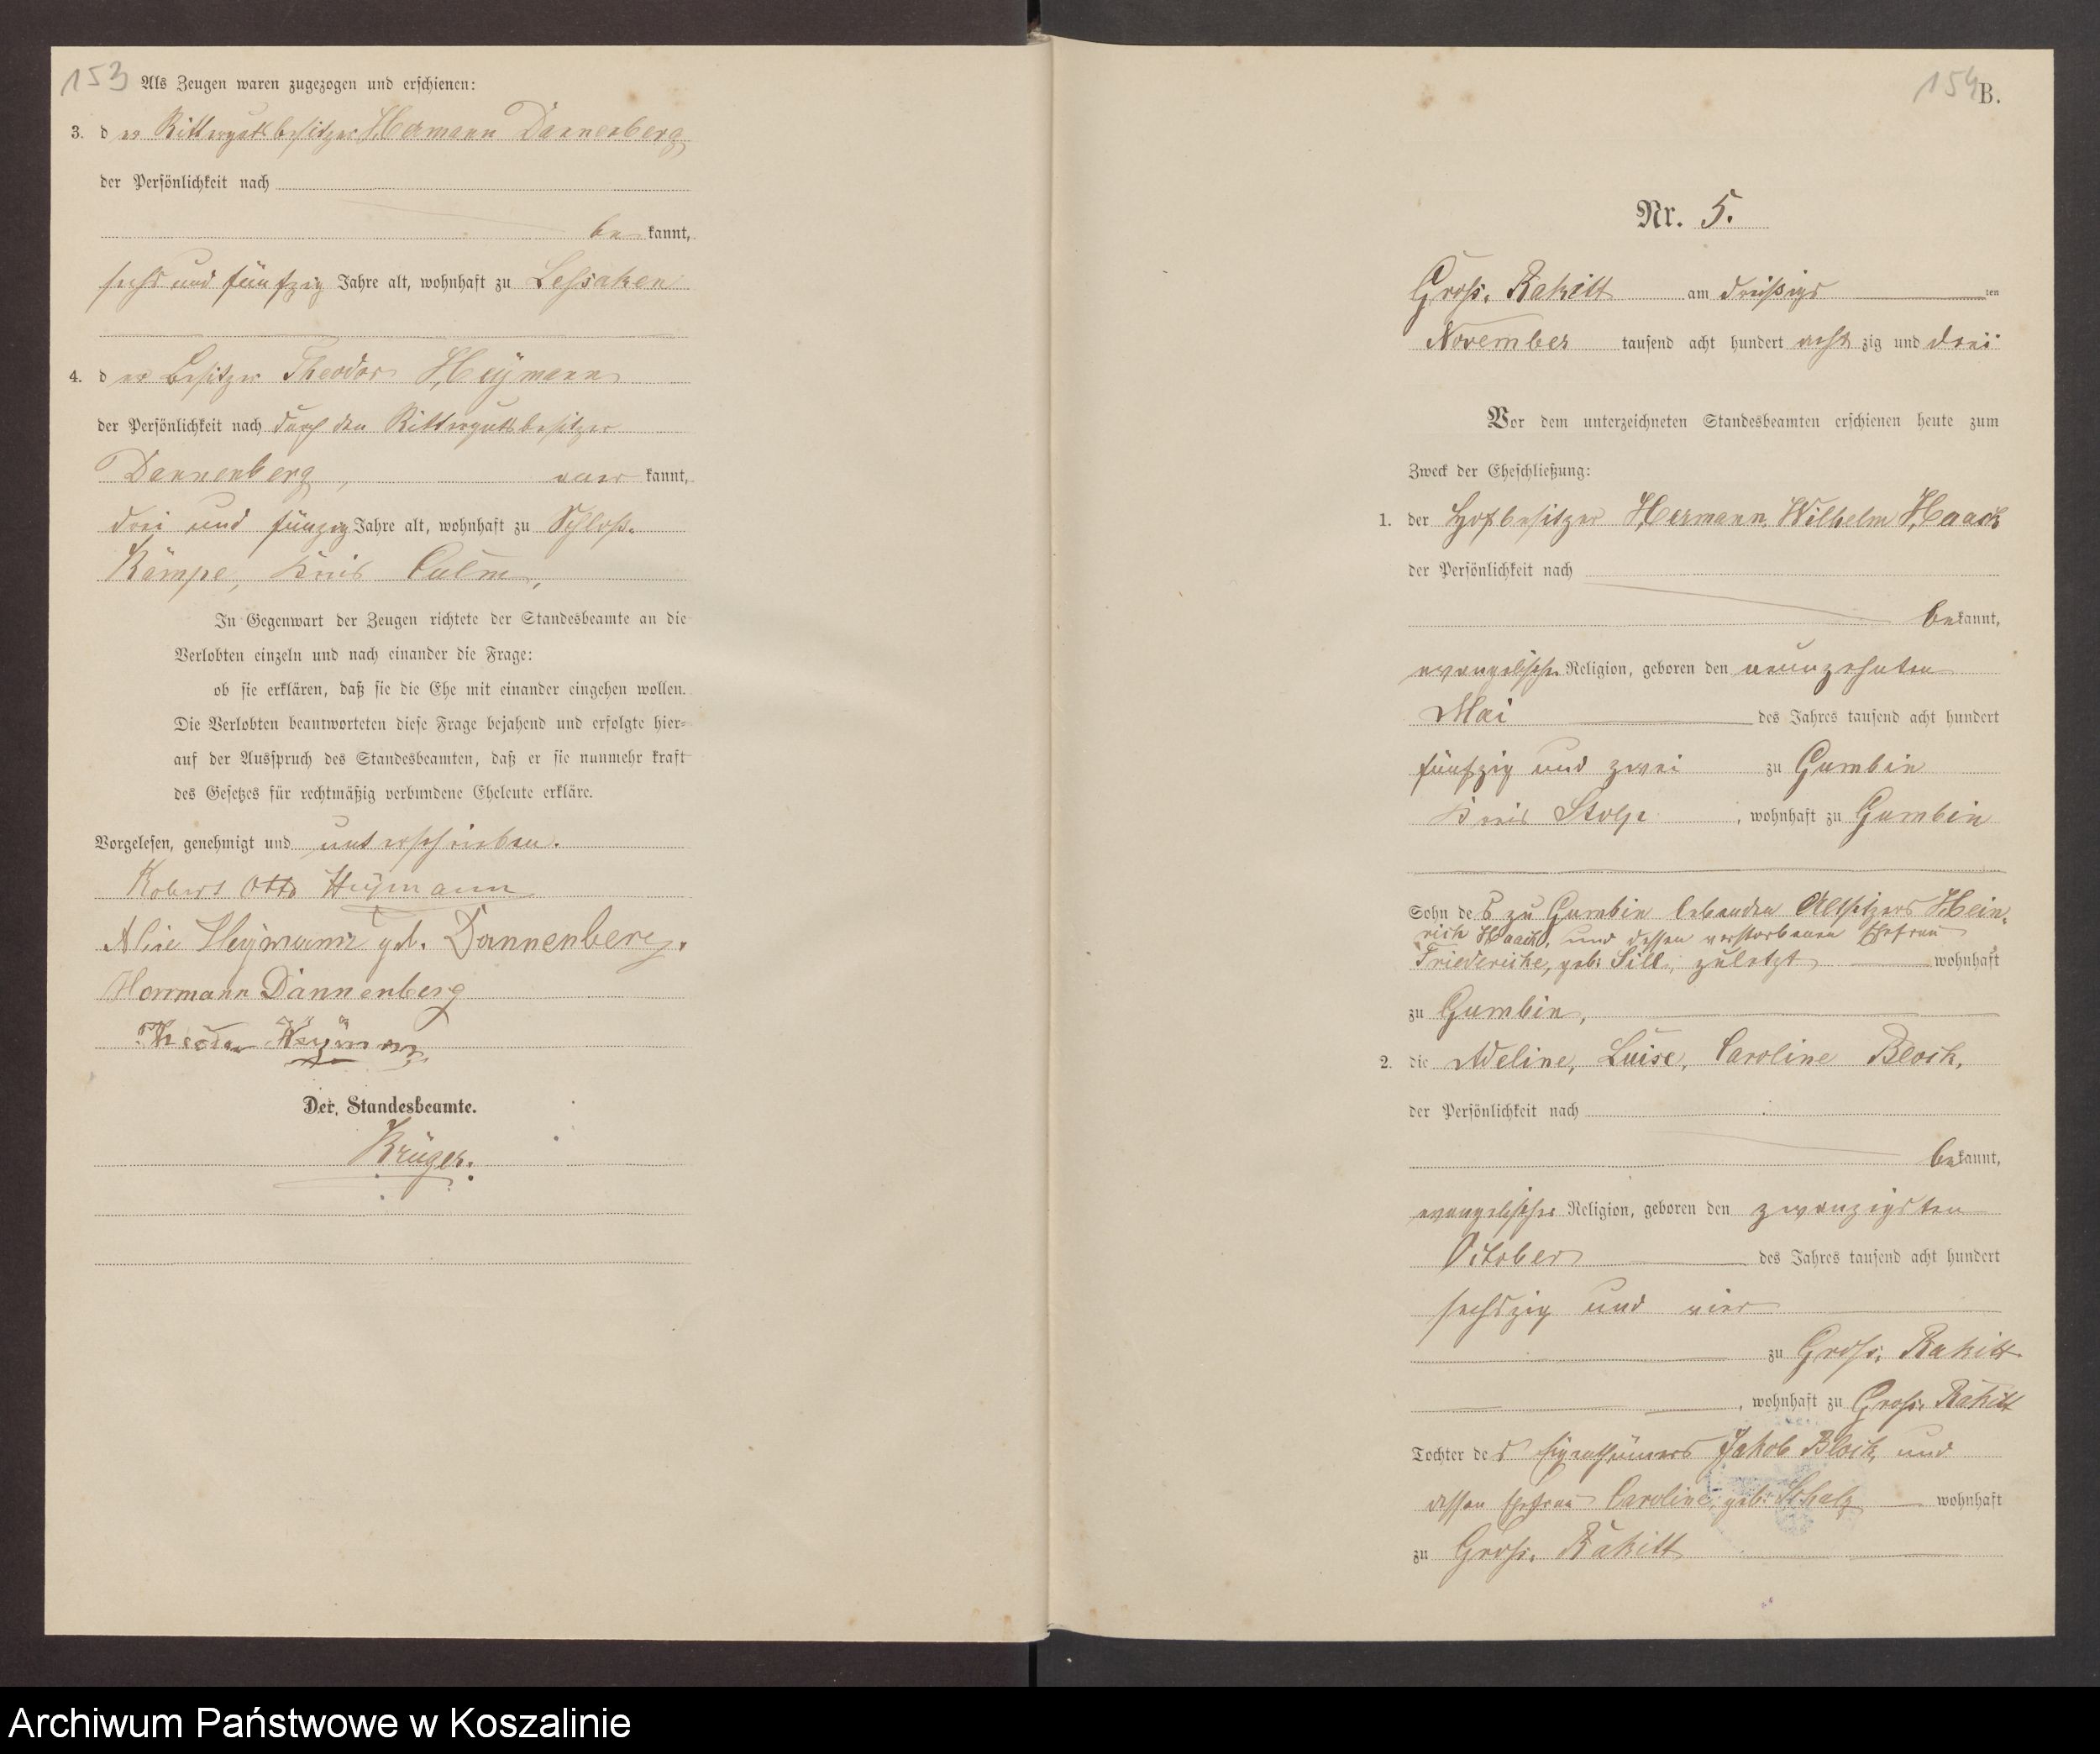 153
Als Zeugen waren zugezogen und erschienen:
3. der Rittergutsbesitzer Hermann Dannenberg
der Persönlichkeit nach
bekannt,
sechs und fünfzig Jahre alt, wohnhaft zu Lessaken
4. der Besitzer Theodor Heÿmann
der Persönlichkeit nach durch den Rittergutsbesitzer
Dannenberg, anerkannt,
drei und fünfzig Jahre alt, wohnhaft zu Schloß.
Kämpe, Kreis Culm,
In Gegenwart der Zeugen richtete der Standesbeamte an die
Verlobten einzeln und nach einander die Frage:
ob sie erklären, daß sie die Ehe mit einander eingehen wollen.
Die Verlobten beantworteten diese Frage bejahend und erfolgte hier-
auf der Ausspruch des Standesbeamten, daß er sie nunmehr kraft
des Gesetzes für rechtmäßig verbundene Eheleute erkläre.
Vorgelesen, genehmigt und unterschrieben.
Robert Otto Heÿmann
Heÿmann geb. Dannenberg.
Herrmann Dannenberg
Theodor Heÿmann
Der Standesbeamte.
Krüger.
154 B.
Nr. 5.
Groß. Rakitt am dreißigsten
November tausend acht hundert achtzig und drei
Vor dem unterzeichneten Standesbeamten erschienen heute zum
Zweck der Eheschließung:
1. der Hofbesitzer Hermann Wilhelm Haack
der Persönlichkeit nach
bekannt,
evangelischer Religion, geboren den neunzehnten
Mai des Jahres tausend acht hundert
fünfzig und zwei zu Gumbin
Kreis Stolp, wohnhaft zu Gumbin
Sohn des zu Gumbin lebenden Altsitzers Hein-
rich Haack, und dessen verstorbenen Ehefrau
Friedericke, geb. Sill, zuletzt wohnhaft
zu Gumbin,
2. die Adeline, Luise, Caroline Block,
der Persönlichkeit nach
bekannt,
evangelischer Religion, geboren den zwanzigsten
October des Jahres tausend acht hundert
sechszig und vier
zu Groß. Rakitt
, wohnhaft zu Groß. Rakitt
Tochter des Eigenthümers Jakob Block und
dessen Ehefrau Caroline, geb. Scholz wohnhaft
zu Groß. Rakitt
Archiwum Państwowe w Koszalinie